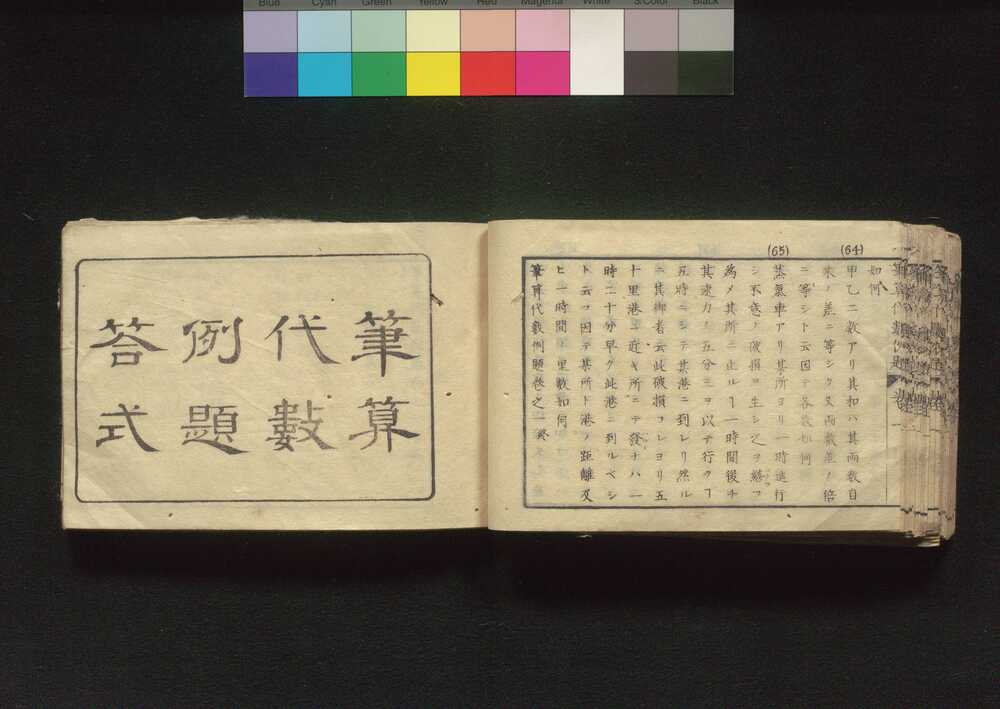 Blue Cyan Green Yellow Red Magenta White 3/Color Black
(64)
(65)
如何
甲乙二數アリ其和ハ其兩數自
乘ノ差ニ等シク又兩數差ノ倍
ニ等シト云因テ各數如何
蒸氣車アリ其所ヨリ一時進行
シ不意ノ破損ヲ生シ之ヲ繕フ
為メ其所ニ止ルヿ一時間後チ
其速力ノ五分三ヲ以テ行クヿ
五時ニシテ其港ニ到レリ然ル
ニ其御者云此破損コレヨリ五
十里港ニ近キ所ニテ發ナハ一
時二十分早ク此港ニ到ルベシ
ト云フ因テ其所ト港ノ距離及
ヒ一時間ノ里數如何
筆算代數例題卷之一終
筆算
代數
例題
答式